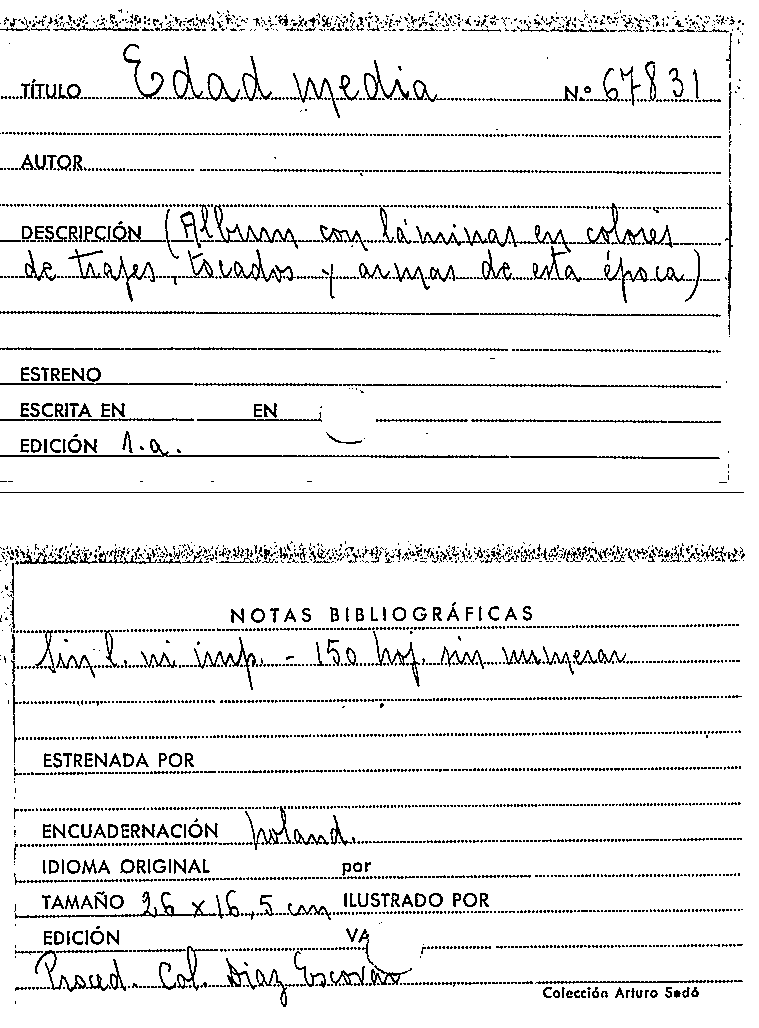 TÍTULO Edad media N.º 67831
AUTOR
DESCRIPCIÓN (Album con láminas en colores
de trajes, tocados y armas de esta época)
ESTRENO
ESCRITA EN EN
EDICIÓN 1.a.
NOTAS BIBLIOGRÁFICAS
Sin l. ni imp. - 150 hoj. sin numerar
ESTRENADA POR
ENCUADERNACIÓN holand.
IDIOMA ORIGINAL por
TAMAÑO 26 x 16,5 cm ILUSTRADO POR
EDICIÓN VA
Proced. Col. Diaz Escovar
Colección Arturo Sedó